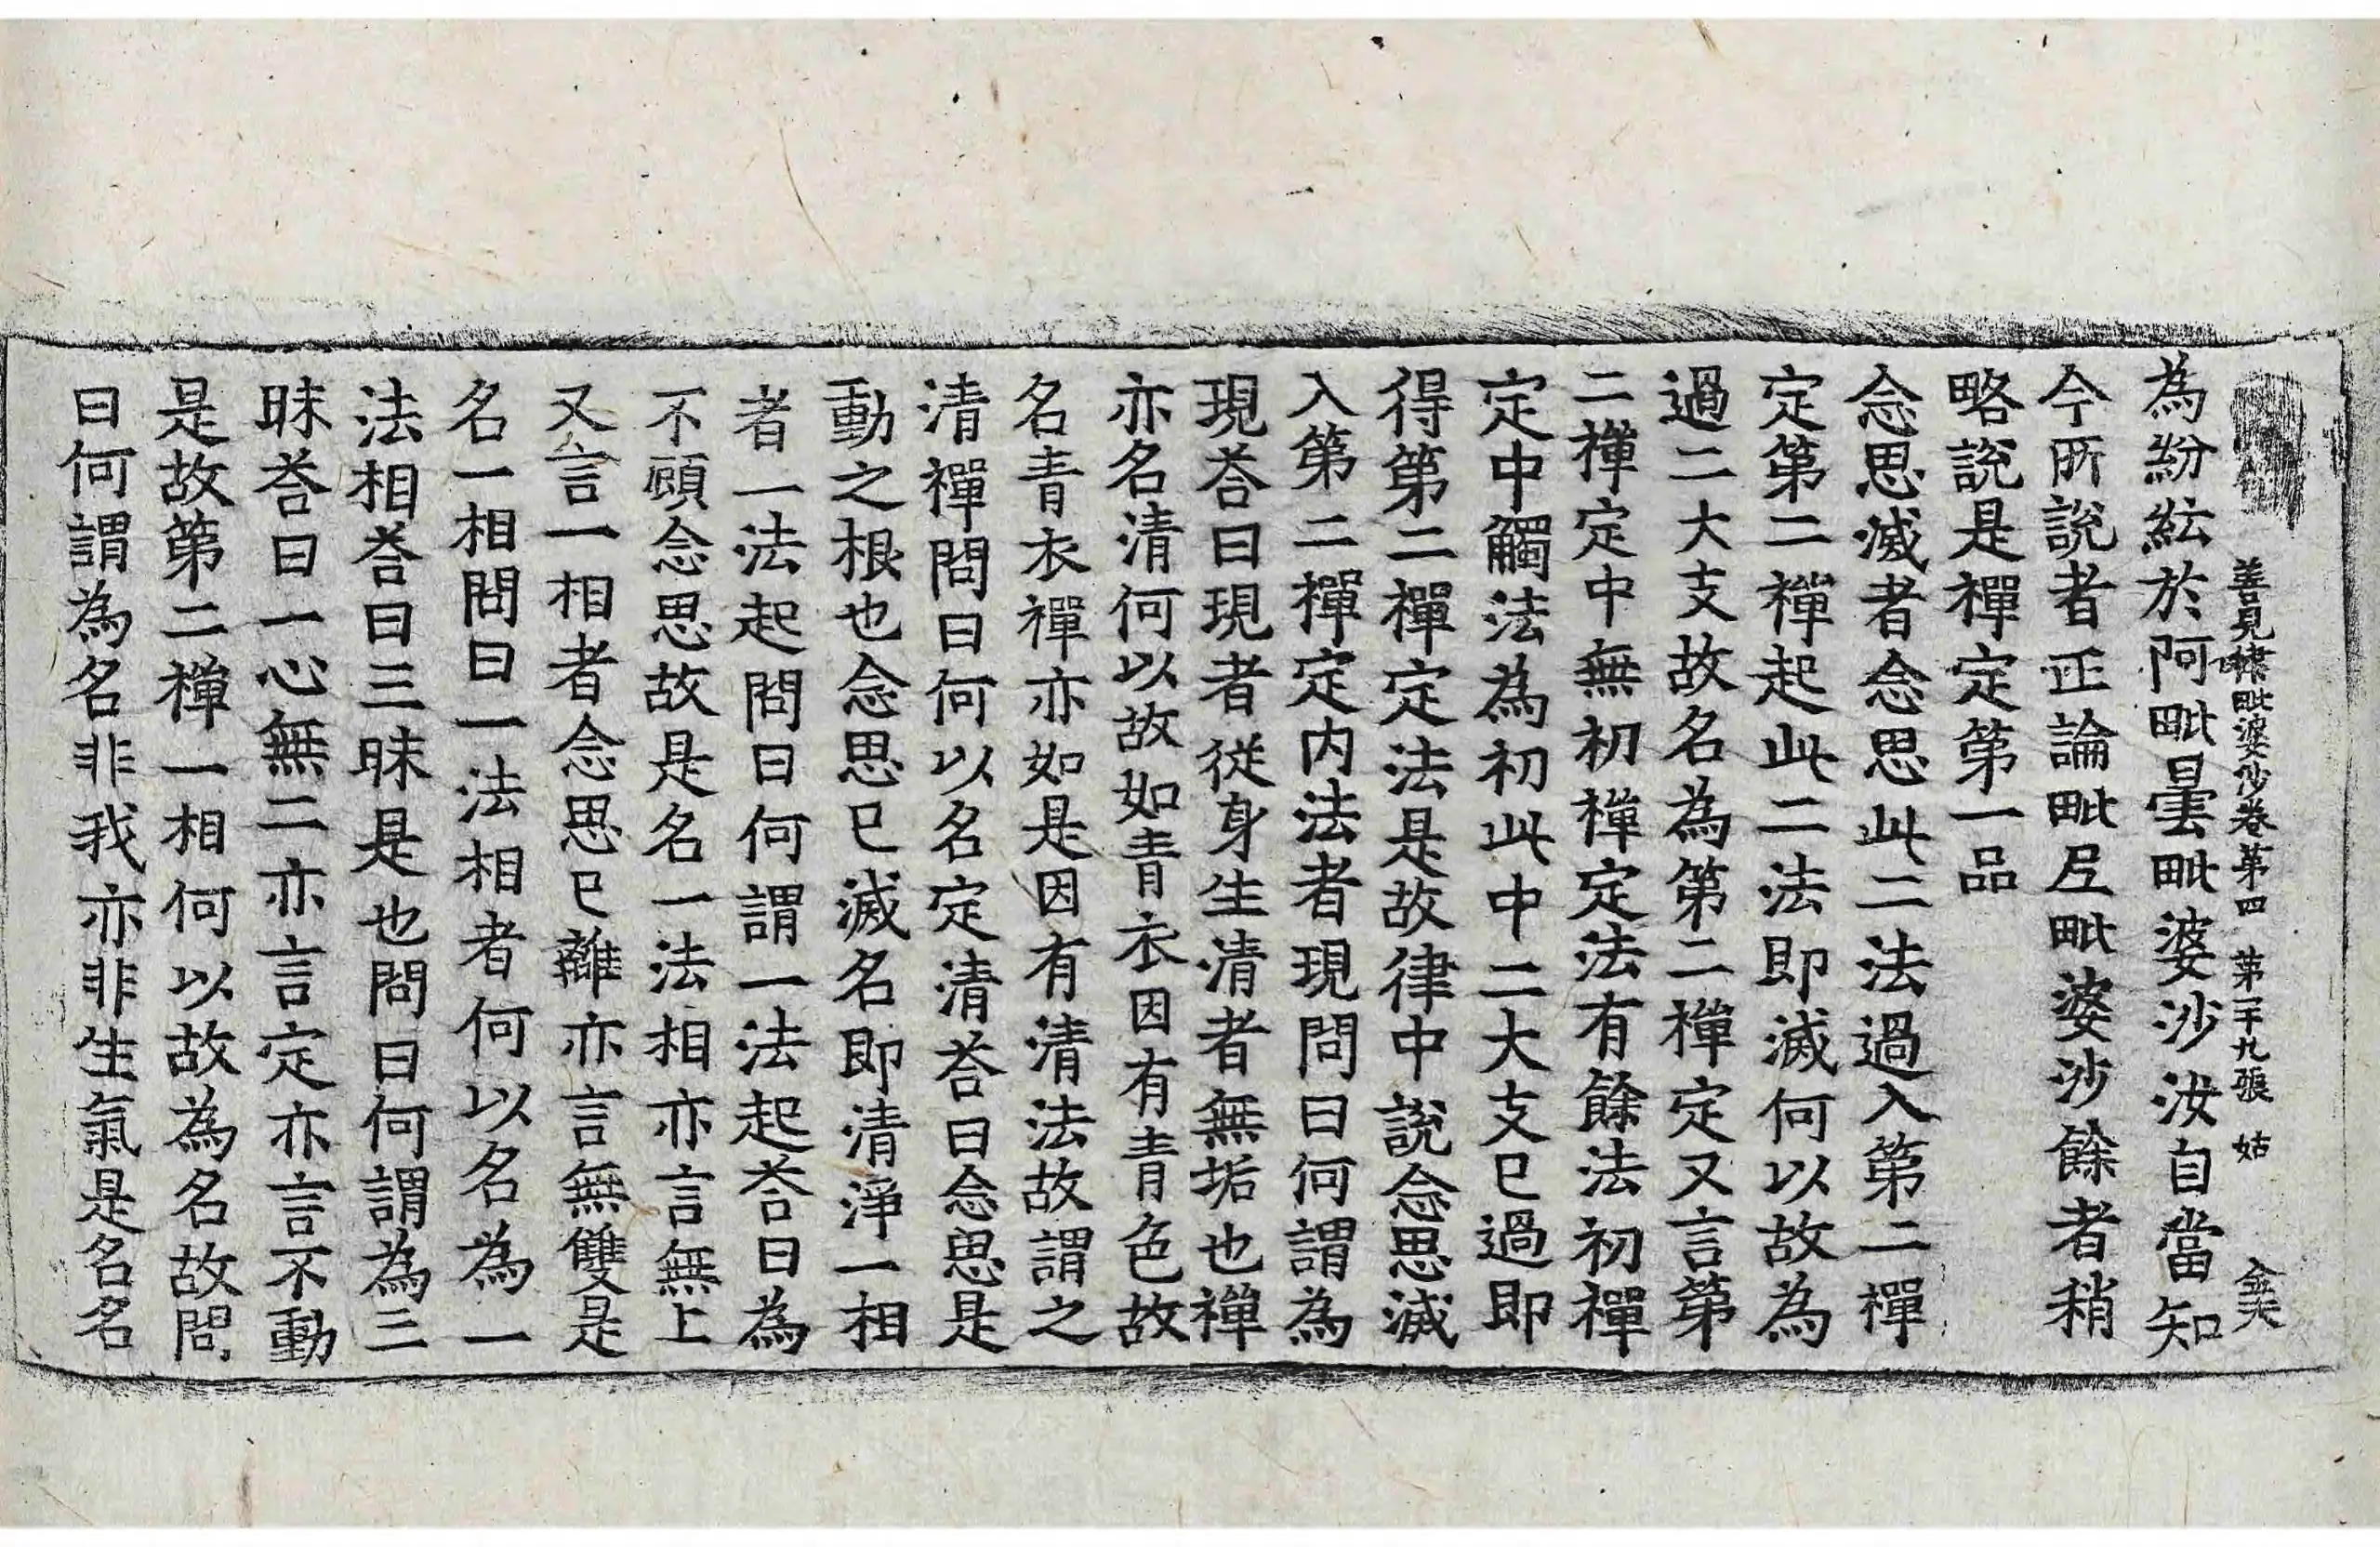 善見律毗婆沙卷第四 第二十九張 姑
為紛紜於阿毗曇毗婆沙汝自當知
今所說者正論毗𡰱毗婆沙餘者稍
略說是禪定第一品
念思滅者念思此二法過入第二禪
定第二禪起此二法即滅何以故為
過二大支故名為第二禪定又言第
二禪定中無初禪定法有餘法初禪
定中觸法為初此中二大支已過即
得第二禪定法是故律中說念思滅
入第二禪定内法者現問曰何謂為
現荅曰現者從身生清者無垢也禪
亦名清何以故如青衣因有青色故
名青衣禪亦如是因有清法故謂之
清禪問曰何以名定清荅曰念思是
動之根也念思已滅名即清淨一相
者一法起問曰何謂一法起荅曰為
不顧念思故是名一法相亦言無上
又言一相者念思已離亦言無雙是
名一相問曰一法相者何以名為一
法相荅曰三昧是也問曰何謂為三
昧荅曰一心無二亦言定亦言不動
是故第二禪一相何以故為名故問
曰何謂為名非我亦非生氣是名名